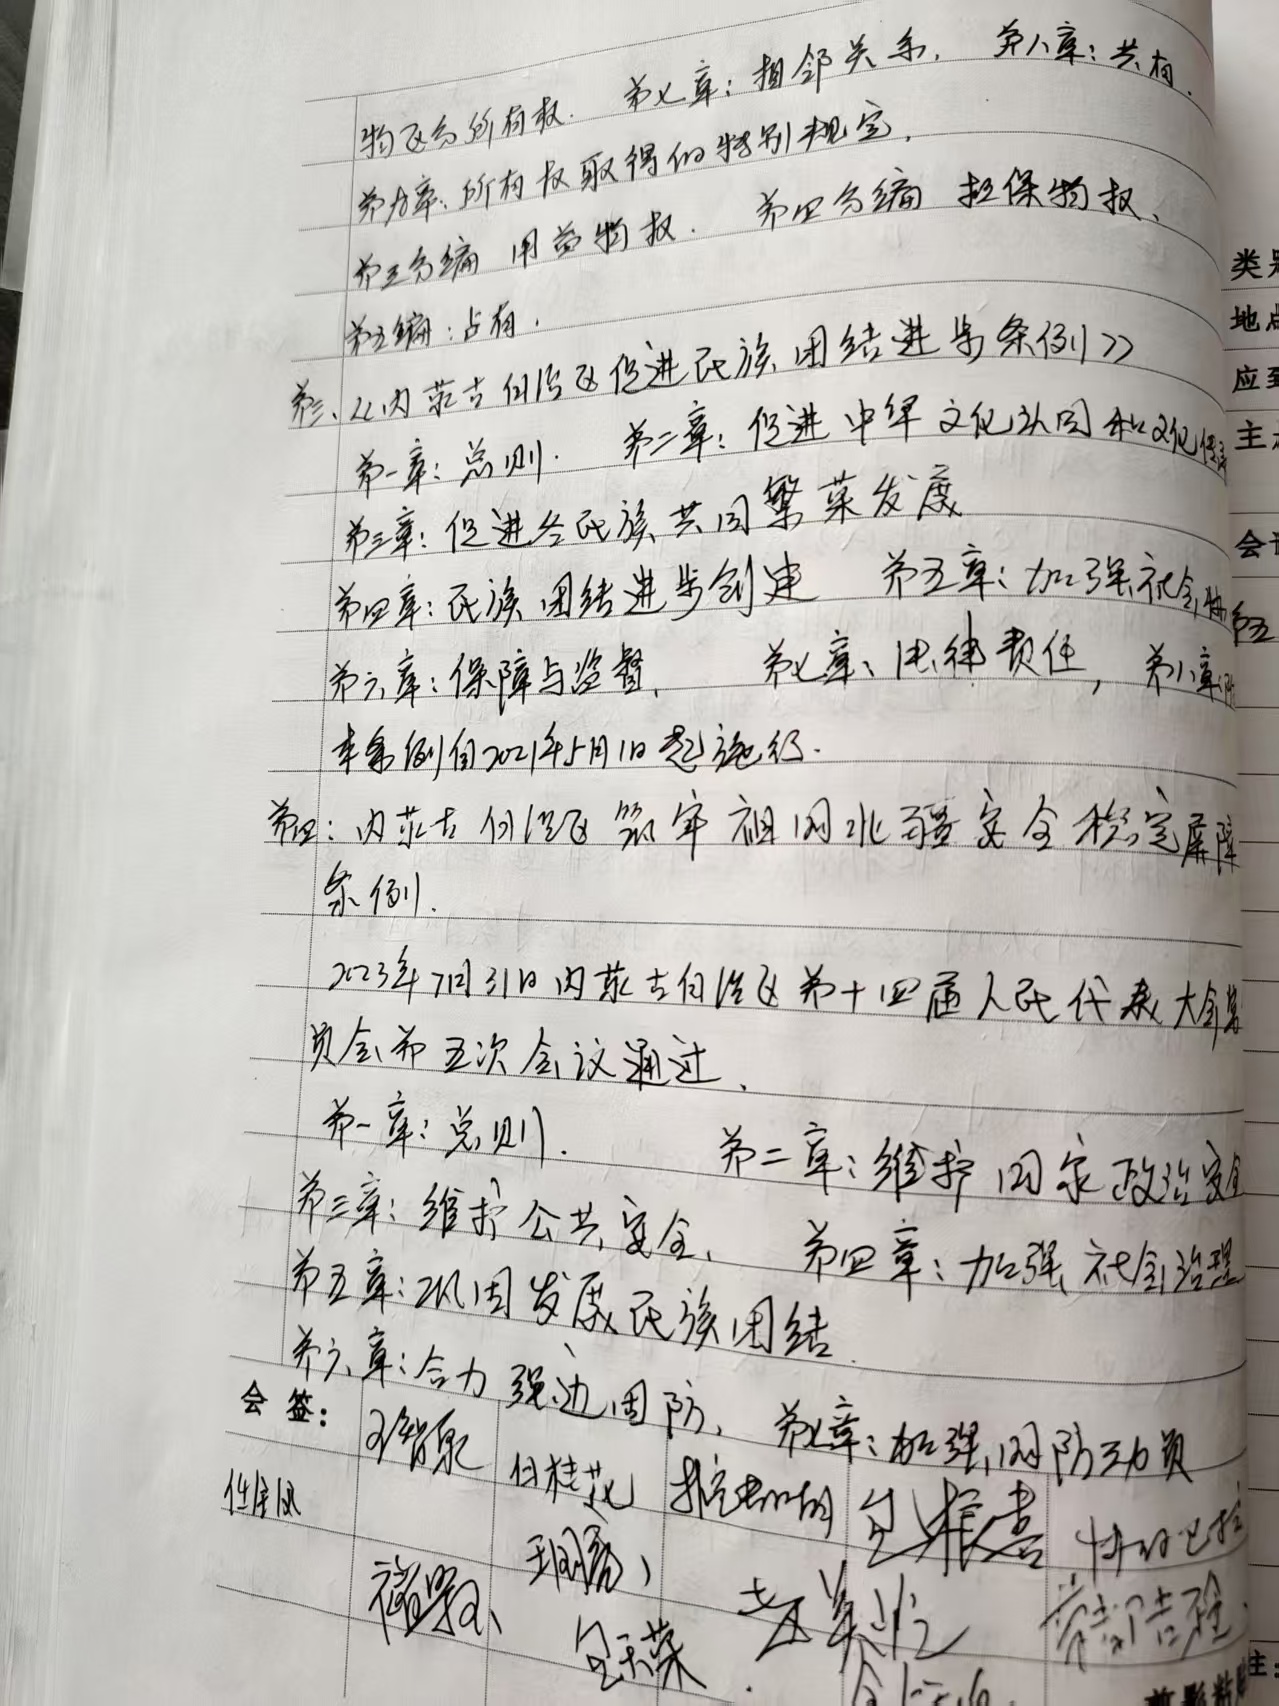 物区分所有权. 第七章：相邻关系. 第八章：共有.
第九章：所有权取得的特别规定.
第三分编 用益物权. 第四分编 担保物权、
第五编：占有.
第三、《内蒙古自治区促进民族团结进步条例》
第一章：总则. 第二章：促进中华文化认同和文化
第三章：促进各民族共同繁荣发展
第四章：民族团结进步创建 第五章：加强社会
第六章：保障与监督. 第七章：法律责任, 第八章：附
本条例自2021年5月1日起施行.
第四：内蒙古自治区筑牢祖国北疆安全稳定屏障
条例.
2023年7月31日内蒙古自治区第十四届人民代表大会常
员会第五次会议通过.
第一章：总则. 第二章：维护国家政治安全
第三章：维护公共安全. 第四章：加强社会治理
第五章：巩固发展民族团结.
第六章：合力强边固防. 第七章：加强国防动员
会签：
白桂花
类
地点
应到
主
会
第五
注：